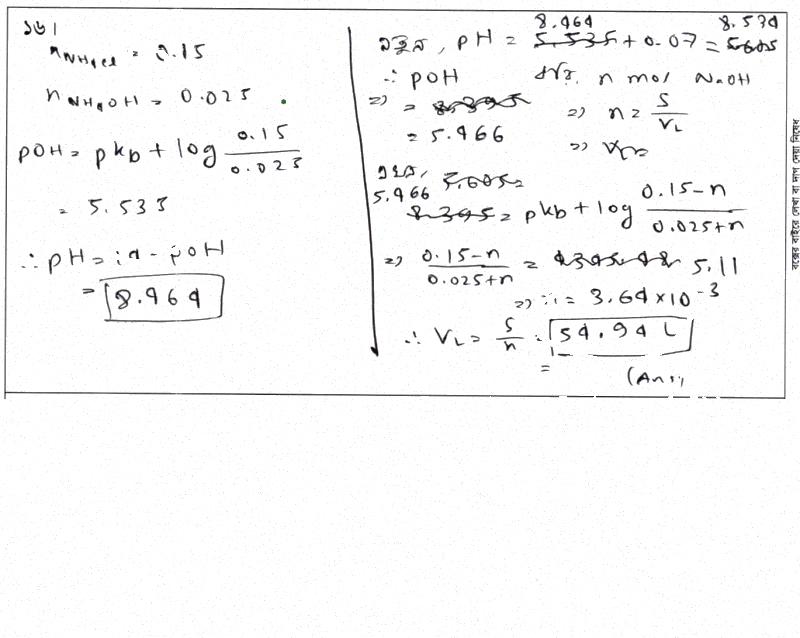 ১৬।
n_NH4Cl = 0.15
n_NH4OH = 0.025
pOH = pkb + log 0.15/0.025
= 5.533
∴ pH = 14 - pOH
= 8.464
এখন, pH = 8.464 + 0.07 = 8.534
∴ pOH
=> = 5.466
n mol NaOH
=> n = S/V_L
=>
এখন,
5.466 = pkb + log (0.15-n)/(0.025+n)
=> (0.15-n)/(0.025+n) = 5.11
=> n = 3.64 × 10^-3
∴ V_L = S/n = 54.94 L
(Ans)
বক্সের বাইরে লেখা বা দাগ দেয়া নিষেধ